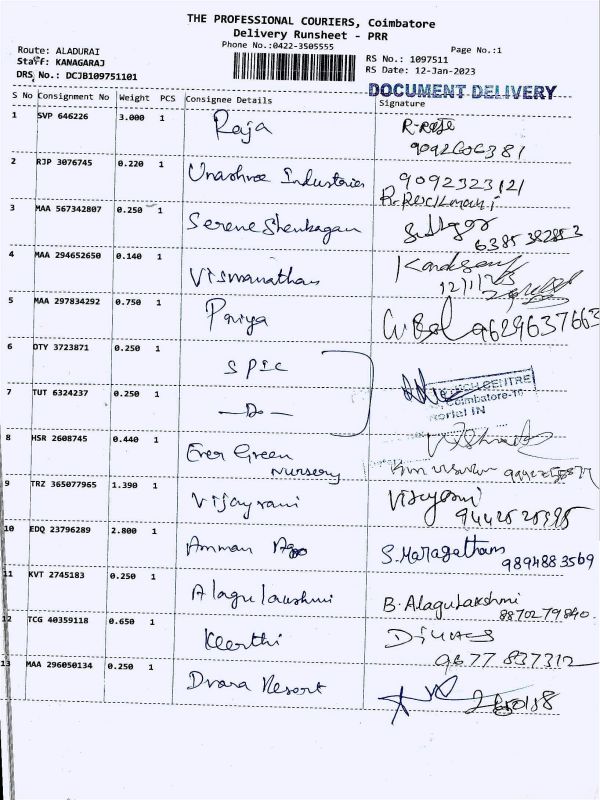 THE PROFESSIONAL COURIERS, Coimbatore
Delivery Runsheet - PRR
Phone No.:0422-3505555
Page No.:1
Route: ALADURAI
Staff: KANAGARAJ
DRS No.: DCJB109751101
RS No.: 1097511
RS Date: 12-Jan-2023
DOCUMENT DELIVERY
S No Consignment No Weight PCS Consignee Details Signature
1 SVP 646226 3.000 1 Raja
2 RJP 3076745 0.220 1 Industries 9092323121
3 MAA 567342807 0.250 1 Serene Shenbagam
4 MAA 294652650 0.140 1 Viswanathan
12/1/23
5 MAA 297834292 0.750 1 Priya 9629637663
6 DTY 3723871 0.250 1 SPIC
7 TUT 6324237 0.250 1 -Do-
CENTRE
Coimbatore-
8 HSR 2608745 0.440 1 Ever Green
Nursery
9 TRZ 365077965 1.390 1 Vijayrani
10 EDQ 23796289 2.800 1 Amman S. Maragatham
9894883569
11 KVT 2745183 0.250 1 Alagulakshmi B. Alagulakshmi
8870279840.
12 TCG 40359118 0.650 1 Keerthi
9677837312
13 MAA 296050134 0.250 1 Resort